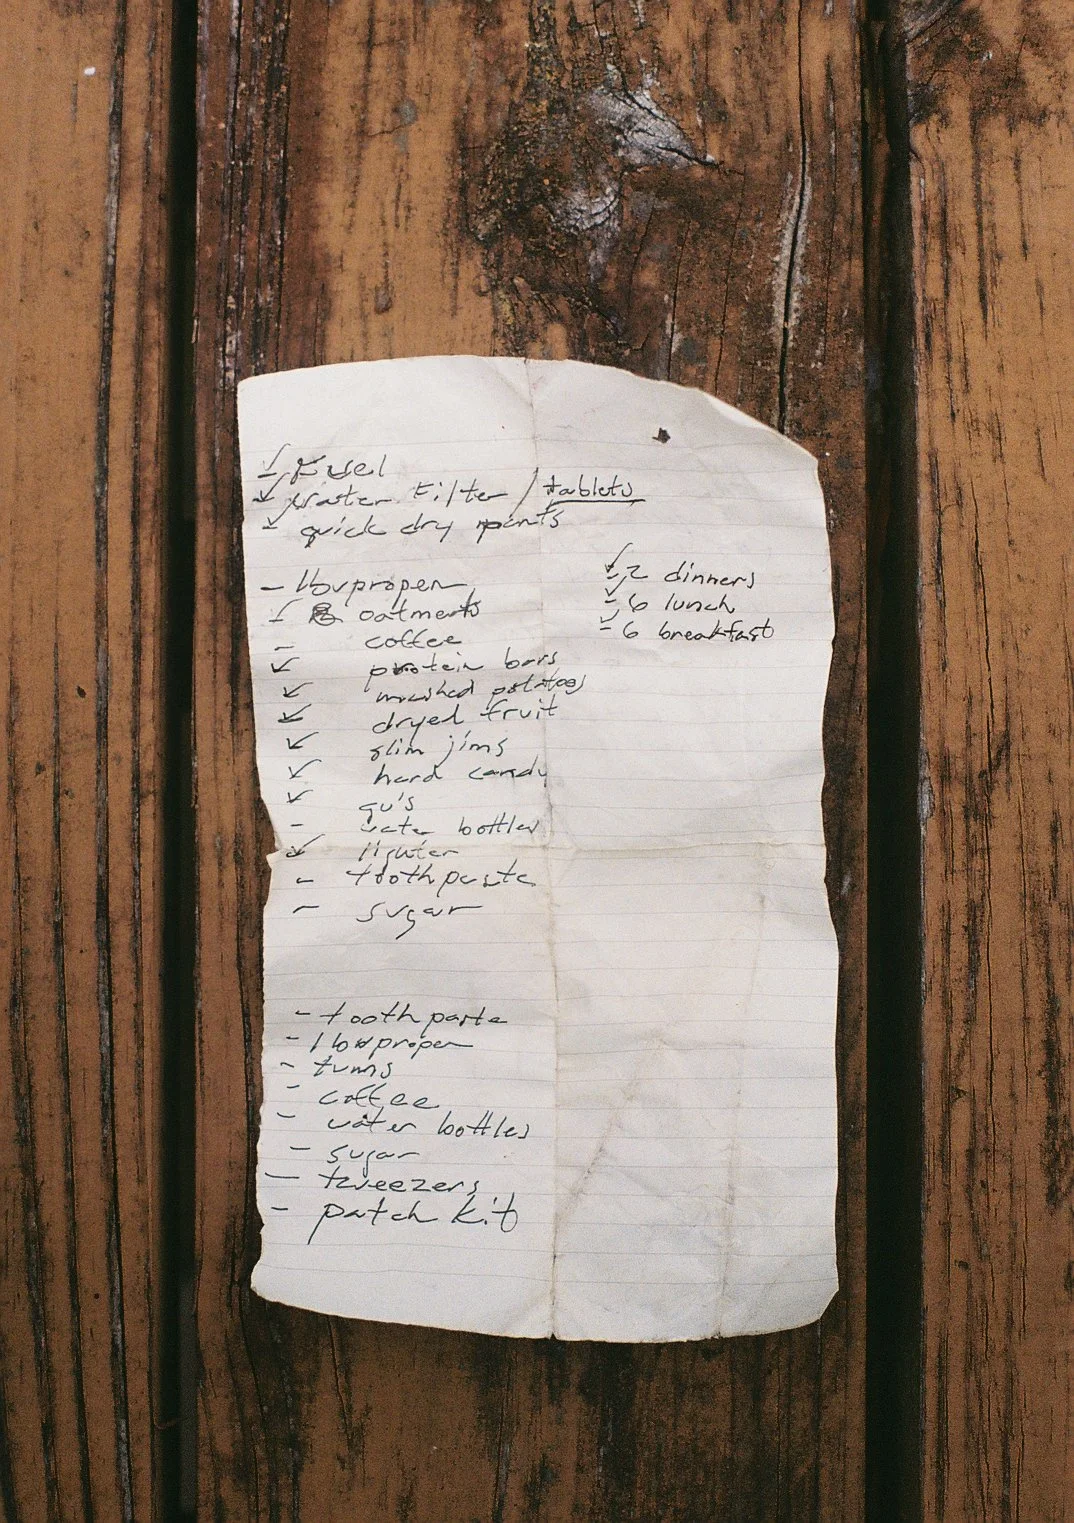 ✓ Fuel
✓ water filter / tablets
✓ quick dry pants
- Ibvpropen
✓ oatmeats
- coffee
✓ protein bars
✓ mashed potatoes
✓ dryed fruit
✓ slim jims
✓ hard candy
✓ gu's
- water bottles
✓ lighter
- toothpaste
- sugar
✓ 2 dinners
✓ 6 lunch
✓ 6 breakfast
- toothpaste
- Ibvpropen
- tums
- coffee
- water bottles
- sugar
- tweezers
- patch kit